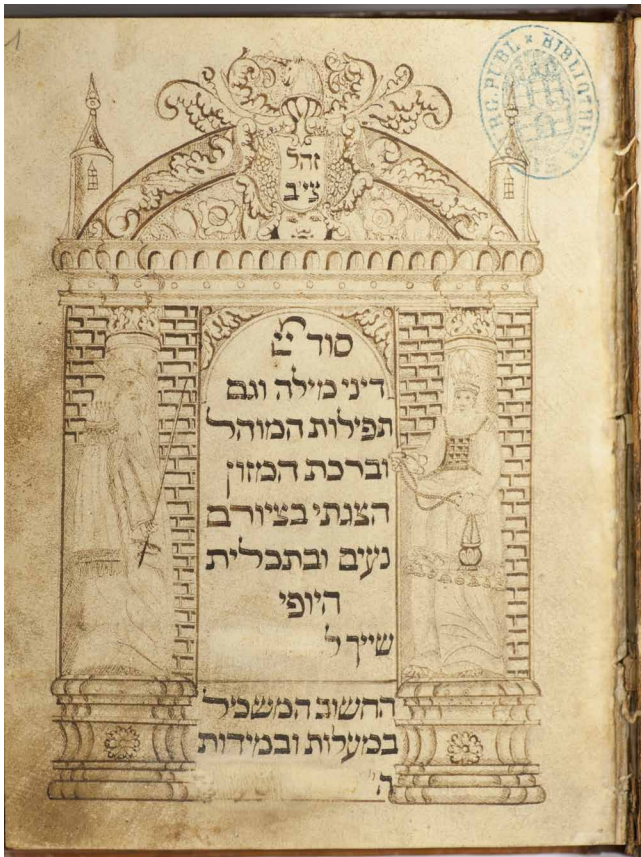 1
RG. PUBL * BIBLIOTHEC
זהל
סוד
דיני מילה וגם
תפילות המוהל
וברכת המזון
הצגתי בציורם
נעים ובתכלית
היופי
שייך ל
החשוב המשכיל
במעלות ובמידות